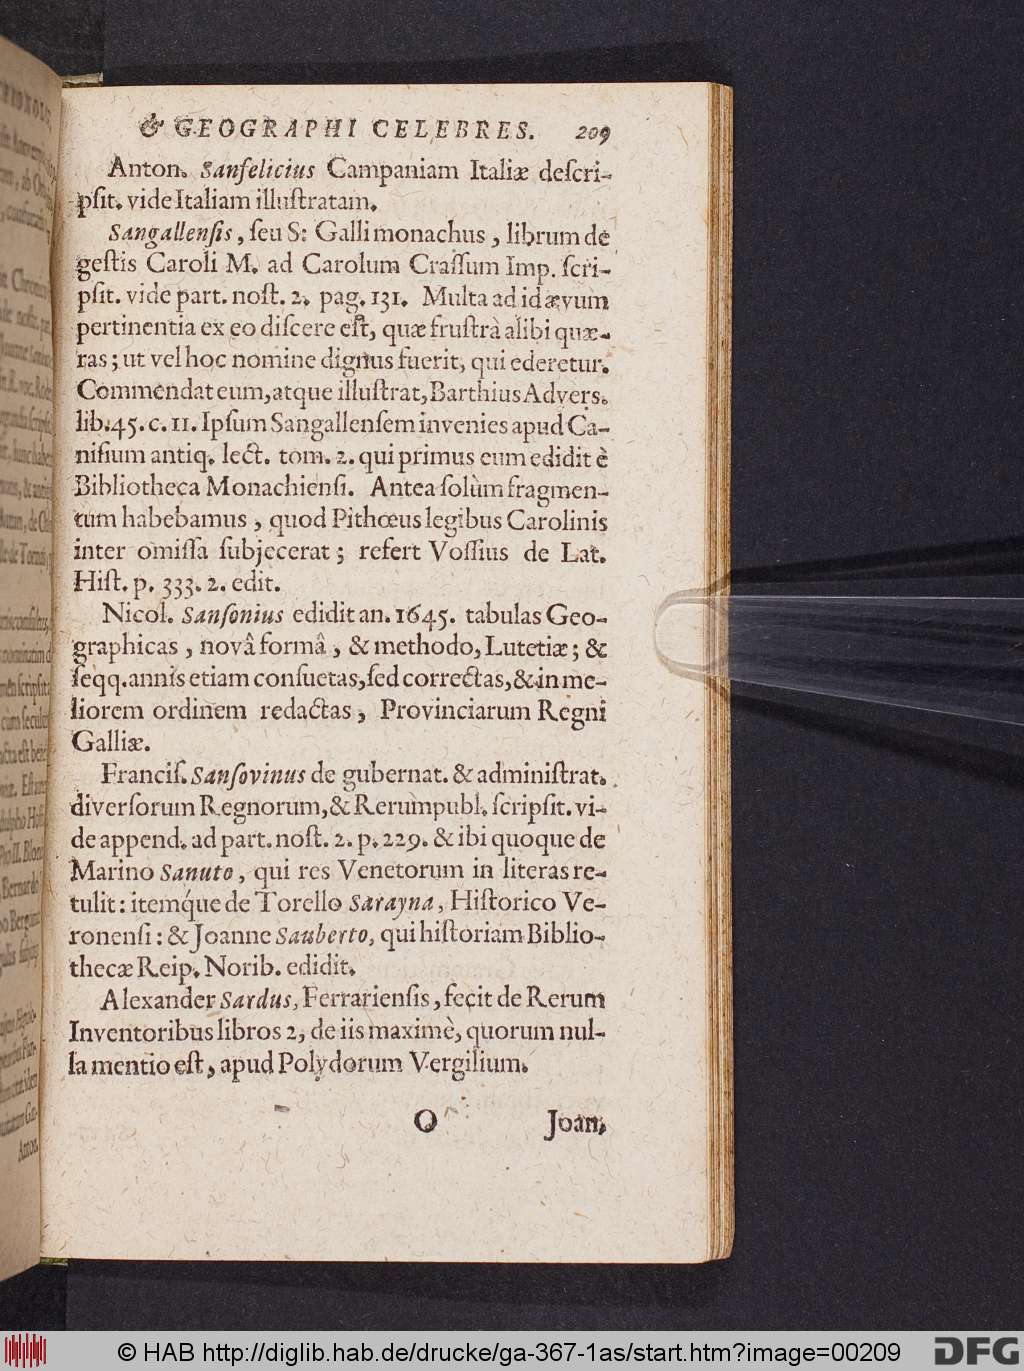 & GEOGRAPHI CELEBRES. 209
Anton. Sanſelicius Campaniam Italiæ deſcri-
pſit. vide Italiam illuſtratam.
Sangallenſis, ſeu S: Galli monachus, librum de
geſtis Caroli M. ad Carolum Craſſum Imp. ſcri-
pſit. vide part. noſt. 2. pag. 131. Multa ad id ævum
pertinentia ex eo diſcere eſt, quæ fruſtrà alibi quæ-
ras; ut vel hoc nomine dignus fuerit, qui ederetur.
Commendat eum, atque illuſtrat, Barthius Advers.
lib. 45. c. 11. Ipſum Sangallenſem invenies apud Ca-
niſium antiq. lect. tom. 2. qui primus eum edidit è
Bibliotheca Monachienſi. Antea ſolùm fragmen-
tum habebamus, quod Pithœus legibus Carolinis
inter omiſſa ſubjecerat; refert Voſſius de Lat.
Hiſt. p. 333. 2. edit.
Nicol. Sanſonius edidit an. 1645. tabulas Geo-
graphicas, novâ formâ, & methodo, Lutetiæ; &
ſeqq. annis etiam conſuetas, ſed correctas, & in me-
liorem ordinem redactas, Provinciarum Regni
Galliæ.
Franciſ. Sanſovinus de gubernat. & adminiſtrat.
diverſorum Regnorum, & Rerumpubl. ſcripſit. vi-
de append. ad part. noſt. 2. p. 229. & ibi quoque de
Marino Sanuto, qui res Venetorum in literas re-
tulit: itemq́ue de Torello Sarayna, Hiſtorico Ve-
ronenſi: & Joanne Sauberto, qui hiſtoriam Biblio-
thecæ Reip. Norib. edidit.
Alexander Sardus, Ferrarienſis, fecit de Rerum
Inventoribus libros 2, de iis maximè, quorum nul-
la mentio eſt, apud Polydorum Vergilium.
O Joan.
© HAB http://diglib.hab.de/drucke/ga-367-1as/start.htm?image=00209
DFG